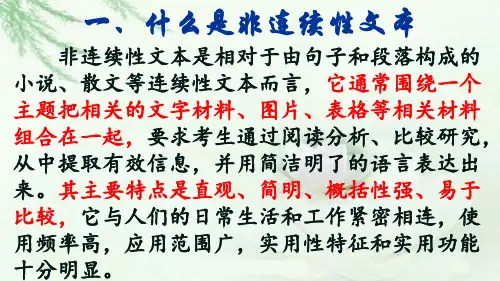 一、什么是非连续性文本
非连续性文本是相对于由句子和段落构成的
小说、散文等连续性文本而言，它通常围绕一个
主题把相关的文字材料、图片、表格等相关材料
组合在一起，要求考生通过阅读分析、比较研究，
从中提取有效信息，并用简洁明了的语言表达出
来。其主要特点是直观、简明、概括性强、易于
比较，它与人们的日常生活和工作紧密相连，使
用频率高，应用范围广，实用性特征和实用功能
十分明显。